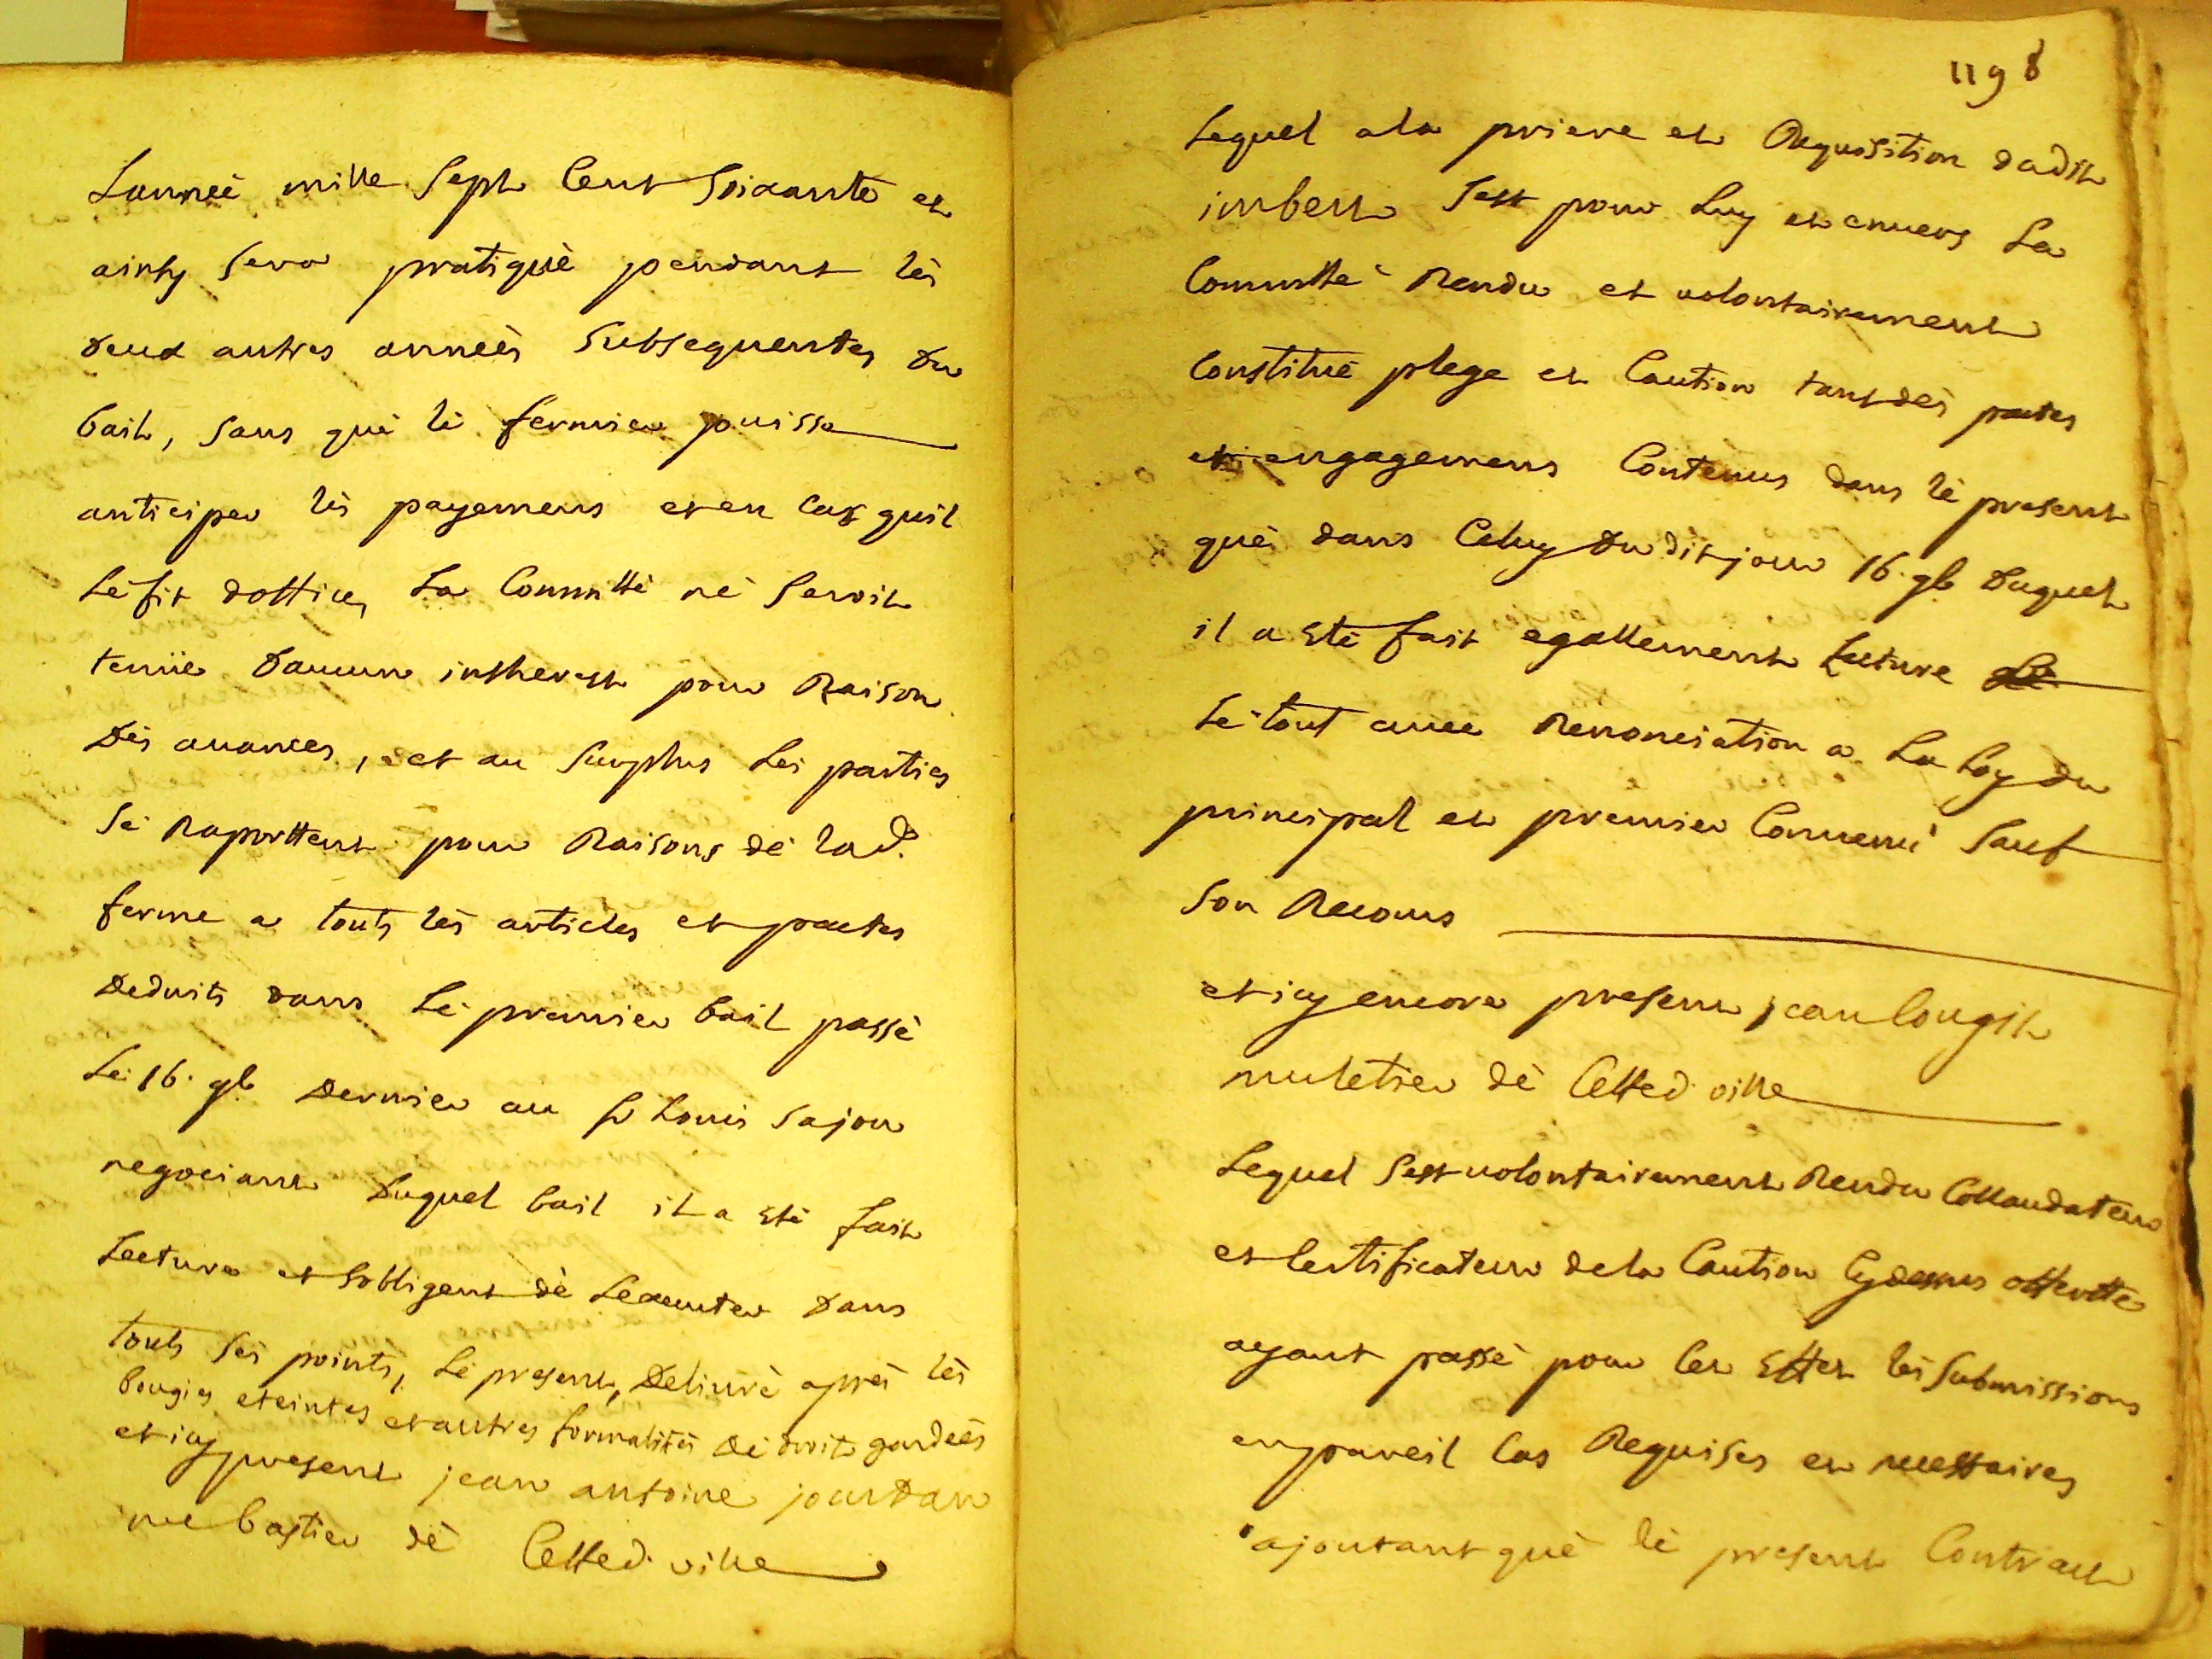 Lanneè mille Sept Cent Soixante et
ainsy Sera pratiquè pendant lès
deux autres anneès Subsequentes du
bail, Sans què lè fermier puisse
anticiper lès payemens et en Cas quil
Lè fit doffice, La Commtté nè Seroit
tenüe daucun intherest pour Raison
Dès auances, et au Surplus Les parties
Sè Raporttent pour Raisons dè lad.
ferme a touts lès articles et pactes
deduits dans Lè premier bail passè
Lè 16. 9b. dernier au Sr Louis Sajou
negociant duquel bail il a etè fait
Lecture et Sobligent dè Lexecuter dans
touts Sès points, Lè present, Deliurè après lès
bougies eteintes et autres formalitès dè droit gardeès
et icy present jean antoine jourdan
me bastier dè Cetted. ville
1198
Lequel ala priere et Requisition dudit
imbert Sest pour Luy et enuers La
Commtté Rendu et volontairement
Constituè plege et Caution tant dès pactes
et engagemens Contenus dans lè present
què dans Celuy du dit jour 16. 9b. duquel
il a etè fait egallement Lecture
Lè tout auec Renonciation a La Loy du
principal et premier Conuenu Sauf
Son Recours
et icy encore present jean lougit
muletier dè Cetted. ville
Lequel Sest volontairement Rendu Collaudateur
et Certificateur dela Caution Cydessus offertte
ayant passè pour Cet Effet lès Submissions
en pareil Cas Requises et necessaires
ajoutant què lè present Contract